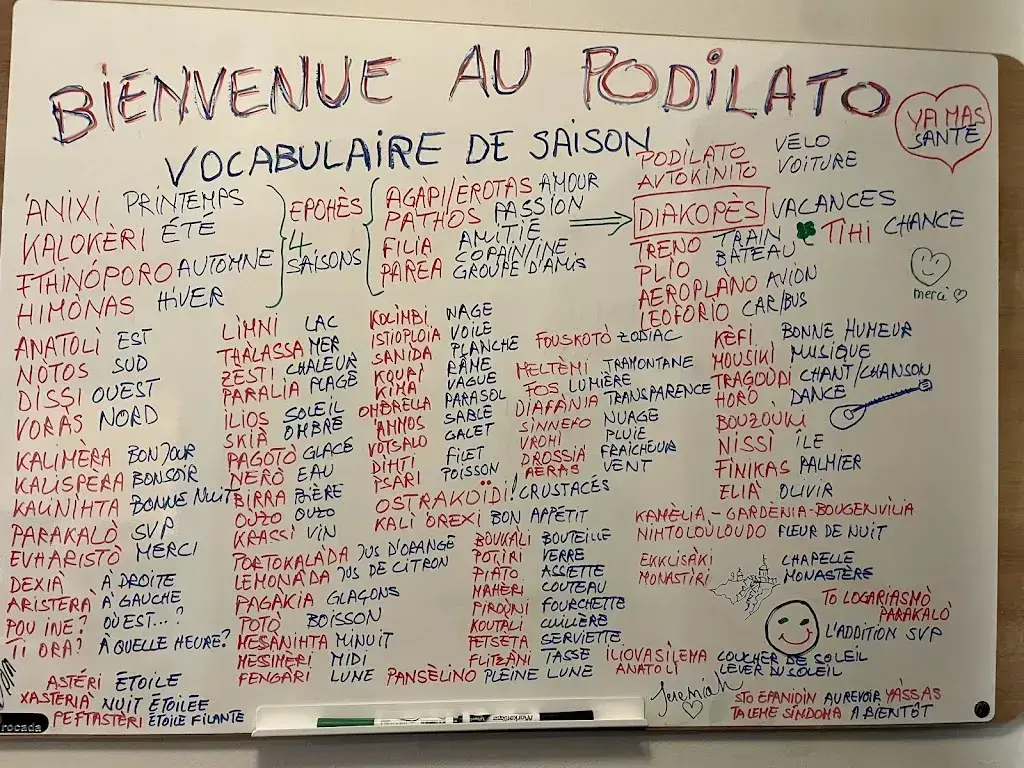 BIENVENUE AU PODILATO
YA MAS
SANTÉ
VOCABULAIRE DE SAISON
'ANIXI PRINTEMPS
KALOKÈRI ÉTÉ
FTHINÓPORO AUTOMNE
HIMÒNAS HIVER
EPOHÈS
4
SAISONS
AGÀPI/ÈROTAS AMOUR
PATHOS PASSION
FILIA AMITIÉ
PARÈA COPAIN/INE
GROUPE D'AMIS
PODÌLATO VÉLO
AVTOKINITO VOITURE
DIAKOPÈS VACANCES
TRENO TRAIN
TIHI CHANCE
PLIO BATEAU
AEROPLANO AVION
LEOFORIO CAR/BUS
merci
ANATOLÌ EST
NOTOS SUD
DISSI OUEST
VORÀS NORD
KALIMÈRA BONJOUR
KALISPÈRA BONSOIR
KALINIHTA BONNE NUIT
PARAKALÒ SVP
EVHARISTÒ MERCI
DEXIÀ À DROITE
ARISTERÀ À GAUCHE
POU INE? OÙ EST...?
TI ORA? À QUELLE HEURE?
ASTÉRI ÉTOILE
XASTERIÀ NUIT ÉTOILÉE
PEFTASTÈRI ÉTOILE FILANTE
LÌMNI LAC
THÀLASSA MER
ZESTI CHALEUR
PARALIA PLAGE
ILIOS SOLEIL
SKIÀ OMBRE
PAGOTÒ GLACE
NERÒ EAU
BIRRA BIÈRE
OUZO OUZO
KRASSI VIN
PORTOKALÀDA JUS D'ORANGE
LEMONÀDA JUS DE CITRON
PAGÀKIA GLAÇONS
POTÒ BOISSON
MESÀNIHTA MINUIT
MESSIMÈRI MIDI
FENGÀRI LUNE
PANSÈLINO PLEINE LUNE
KOLÌMBI NAGE
ISTIOPLOIA VOILE
SANIDA PLANCHE
KOUPÌ RÂME
KIMA VAGUE
OMBRELLA PARASOL
'AMMOS SABLE
VOTSALO GALET
DIHTI FILET
PSARI POISSON
OSTRAKOÏDI! CRUSTACÉS
KALÌ ÒREXI BON APPÉTIT
FOUSKOTÒ ZODIAC
MELTÈMI TRAMONTANE
FOS LUMIÈRE
DIAFÀNIA TRANSPARENCE
SINNEFO NUAGE
VROHI PLUIE
DROSSIÀ FRAICHEUR
AERAS VENT
BOUKALI BOUTEILLE
POTÌRI VERRE
PIATO ASSIETTE
MAHÈRI COUTEAU
PIROÙNI FOURCHETTE
KOUTALI CUILLÈRE
PETSÈTA SERVIETTE
FLITZÀNI TASSE
KÈFI BONNE HUMEUR
MOUSIKÌ MUSIQUE
TRAGOUDI CHANT/CHANSON
HORÒ DANCE
BOUZOUKI
NISSÌ ÎLE
FINIKAS PALMIER
ELIÀ OLIVIR
KAMÈLIA - GARDÈNIA - BOUGENVILIA
NIHTOLOÙLOUDO FLEUR DE NUIT
EKKLISÀKI CHAPELLE
MONASTÌRI MONASTÈRE
TO LOGARIASMÒ
PARAKALÒ
L'ADDITION SVP
ILIOVASÌLEMA COUCHER DE SOLEIL
ANATOLÌ LEVER DU SOLEIL
Jeremiah
STO EPANIDIN AU REVOIR YÀSSAS
TA LEME SÌNDOMA A BIENTÔT
rocada